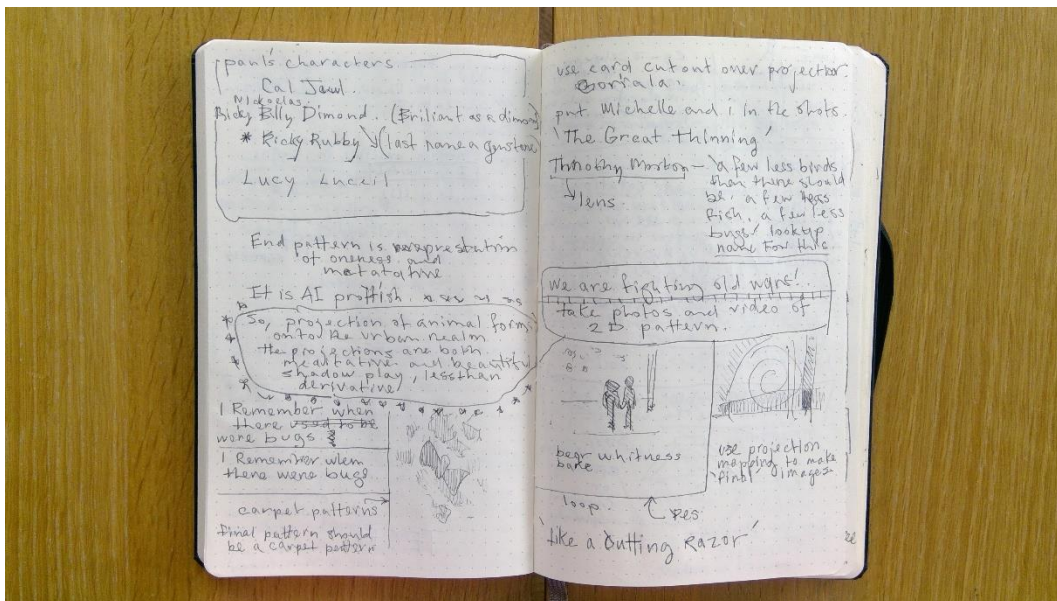 paul's characters
Cal Jewl.
Nickoelas
Ricky Billy Dimond. (Briliant as a dimond)
* Ricky Rubby (last name a gmstone
Lucy Luceil
End pattern is
of oneness and
It is AI
So, projection of animal forms
onto the urban realm
the projections are both
meditative and beautiful
shadow play, less than
derivative
I Remember when
there used to be
were bugs
I Remember when
there were bugs
carpet patterns
final pattern should
be a carpet pattern
use card cutout over projector.
put Michelle and i in the shots.
'The Great Thinning'
Timothy Morton - 'a few less birds
than there should
be, a few less
fish, a few less
bugs' lookup
name For this
lens.
'we are fighting old wars'.
take photos and video of
2D pattern.
bear whitness
bare
use projection
mapping to make
'final' images.
loop.
yes
'like a Cutting Razor'